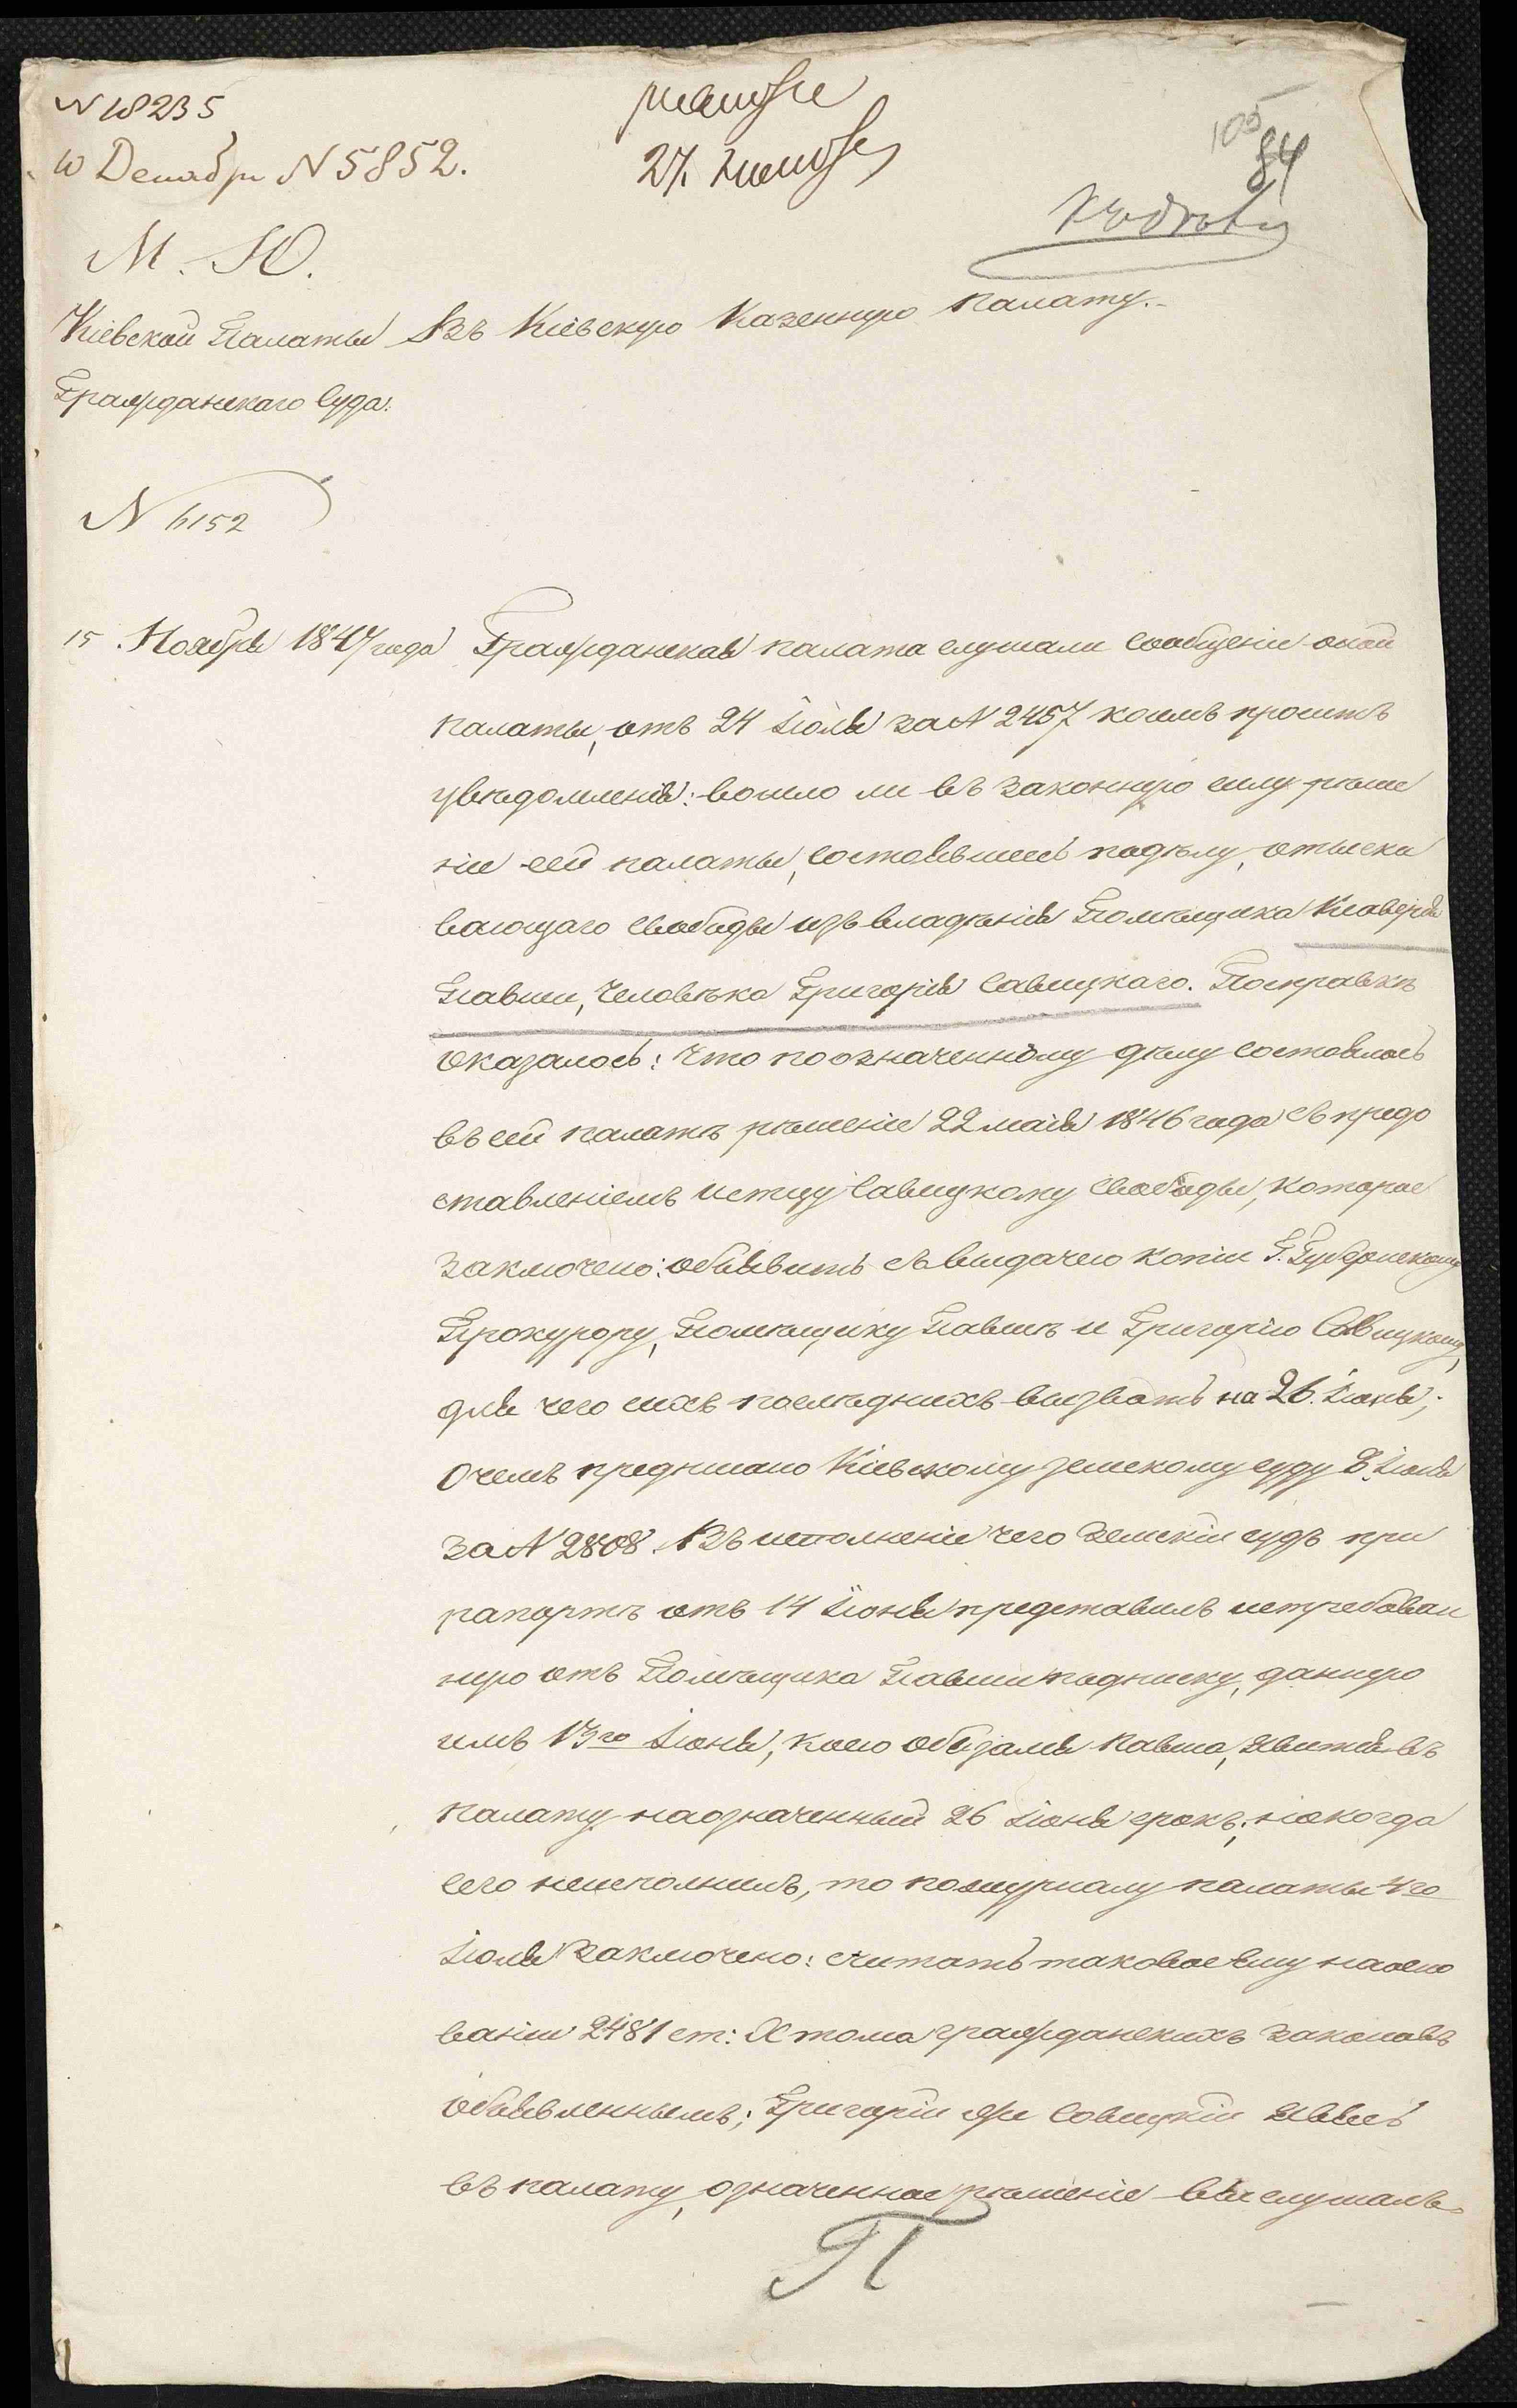 N 18235
10 Декабр N 5852.
27. 
105
84
М. Ю.
Кіевской Палаты
Въ Кіевскую Казенную Палату.
Гражданскаго Суда.
N 6152
15 Ноября 1847 года
Гражданская палата слушали сообщеніе оной
палаты, отъ 24 Іюля за N 2457 коимъ проситъ
увѣдомленія: вошло ли въ законную силу рѣше
ніе сей палаты, состоявшееся подѣлу, отыски
вающаго свободы изъ владѣнія Помѣщика Ксаверія
Павши, человѣка Григорія Савицкаго. Посправкѣ
оказалось: что поозначенному дѣлу состоялось
въ сей палатѣ рѣшеніе 22 маія 1846 года съ предо
ставленіемъ истцу Савицкому свободы, которое
заключено: объявить съ выдачею копіи Г. Губернскому
Прокурору, Помѣщику Павшѣ и Григорію Савицкому,
для чего сихъ послѣднихъ вызвать на 26. Іюня;
очемъ предписано Кіевскому земскому суду 8. Іюня
за N 2808. Въ исполненіе чего Земскій судъ при
рапортѣ отъ 14 Іюня представилъ истребован
ную отъ Помѣщика Павши подписку, данную
имъ 13го Іюня, коею обязался Павша, явиться въ
палату наозначенный 26 Іюня срокъ; нокогда
сего неисполнилъ, то пожурналу палаты 4го
Іюля заключено: считать таковое ему наосно
ваніи 2481 ст: X тома гражданскихъ законовъ
объявленнымъ; Григорій же Савицкій явясь
въ палату, означенное рѣшеніе выслушалъ
П